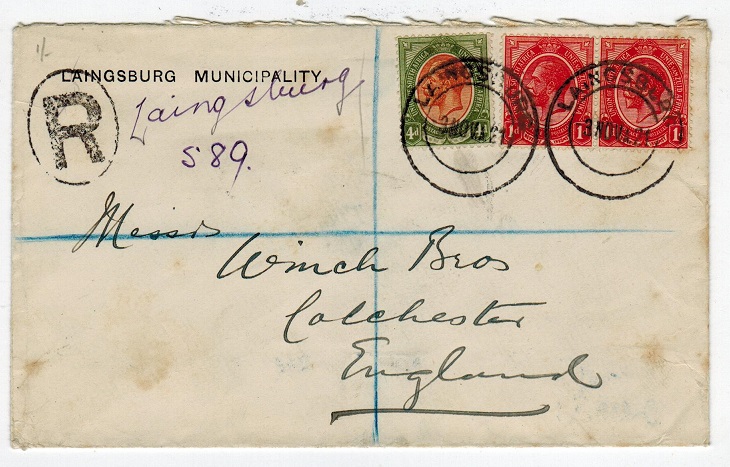 1/-
LAINGSBURG MUNICIPALITY
R
Laingsburg
589.
4d
1d
1d
LAINGSBURG
NOV 21
LAINGSBURG
NOV 21
Messrs
Winch Bros
Colchester
England